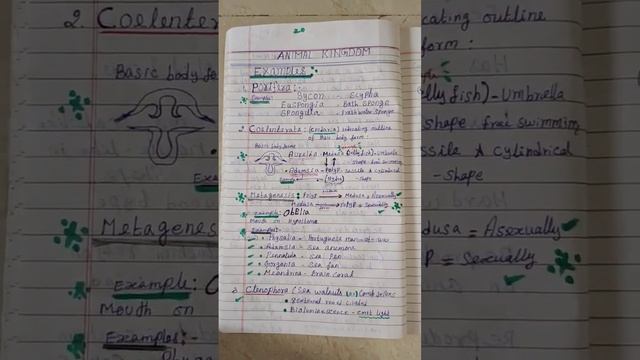 20
ANIMAL KINGDOM
EXAMPLES:
1. Porifera:-
Example: Sycon - Scypha
Euspongia - Bath Sponge
Spongilla - Freshwater Sponge
2. Coelenterata: (Cnidaria) indicating outline
of their body form:
Basic body forms
Aurelia - Medusa (Jellyfish) - umbrella
shape free swimming
Adamsia - Polyp sessile & cylindrical
(Hydra) - shape
Metagenesis: Polyp Medusa = Asexually
Medusa Polyp = sexually
Example: Obelia
Mouth on hypostome
Examples:
Physalia - Portuguese man-of-war
Adamsia - Sea anemone
Pennatula - Sea Pen
Gorgonia - Sea fan
Meandrina - Brain coral
3. Ctenophora (Sea walnuts (or) Comb Jellies
8 external rows ciliated
Bioluminescence - emit light
2. Coelenter
Basic body fo
Exa
Metagenes
Example:
Mouth on
Examples:-
cating outline
form:
ellyfish) - umbrella
shape free swimming
essile & cylindrical
- shape
dusa = Asexually
P = sexually